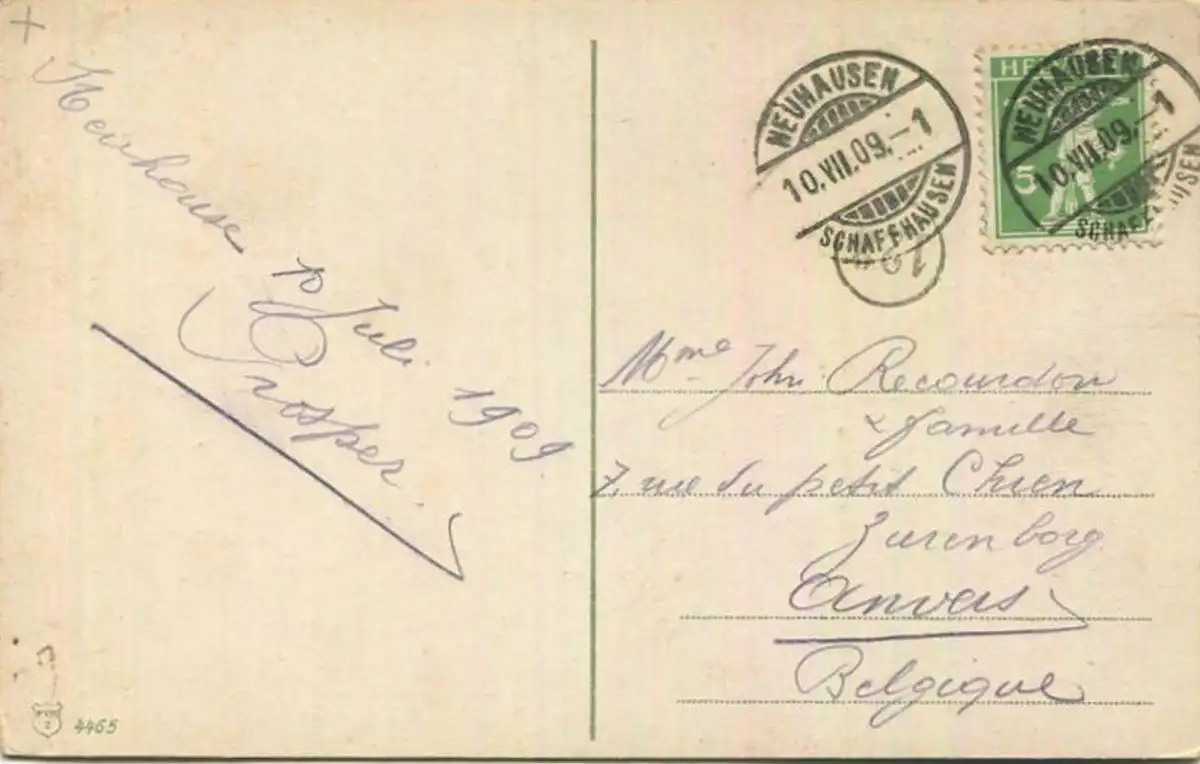 Neuhause
10 Juli 1909.
Prosper.
NEUHAUSEN
10.VII.09.-1
SCHAFFHAUSEN
HELV
5
NEUHAUSEN
10.VII.09.-1
SCHAFFHAUSEN
Mme John Recourdon
& famille
7. rue du petit Chien
Zurenborg
Anvers
Belgique
4465